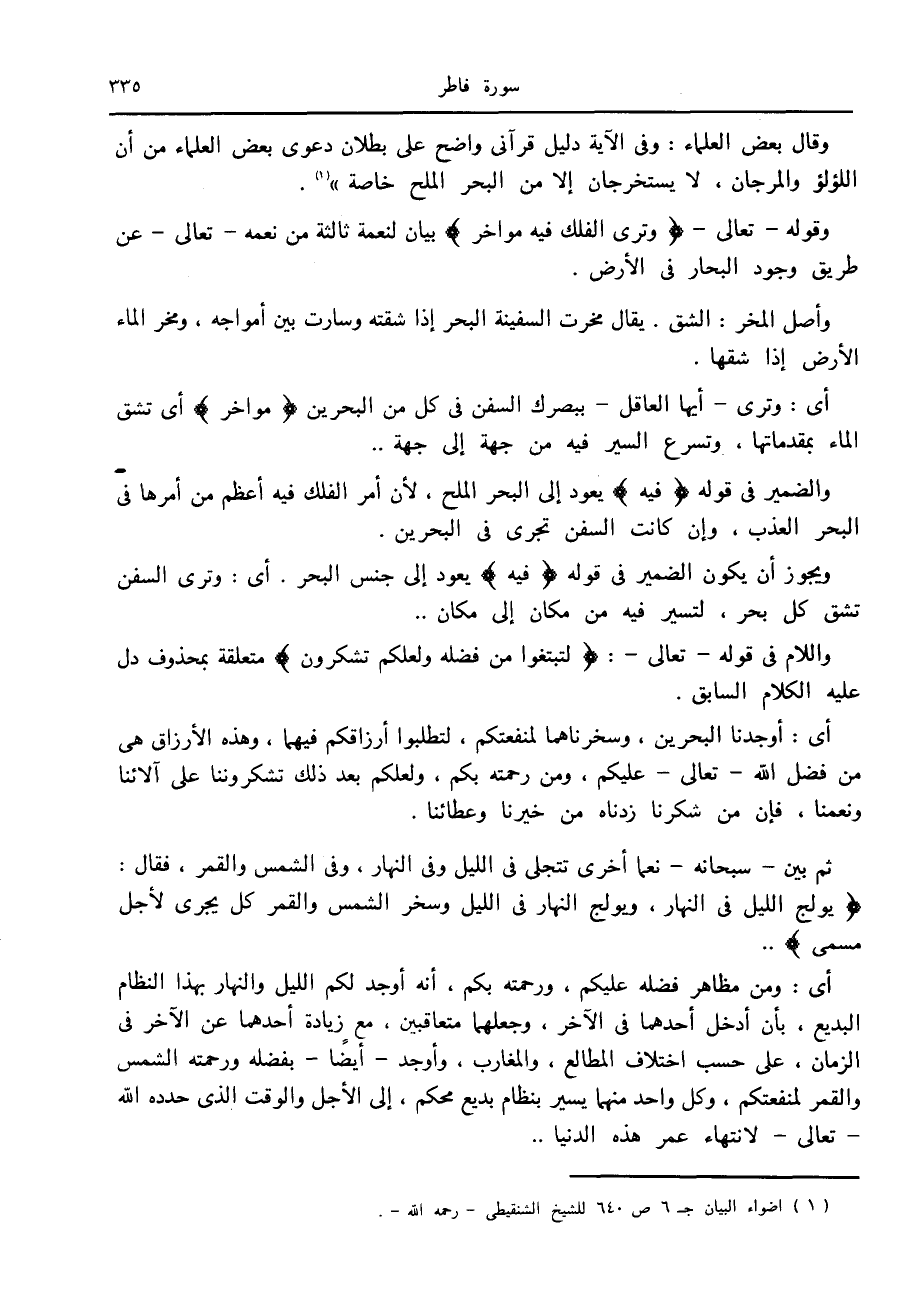 سورة فاطر ٣٣٥
وقال بعض العلماء : وفى الآية دليل قرآنى واضح على بطلان دعوى بعض العلماء من أن
اللؤلؤ والمرجان ، لا يستخرجان إلا من البحر الملح خاصة »(١) .
وقوله - تعالى - ﴿ وترى الفلك فيه مواخر ﴾ بيان لنعمة ثالثة من نعمه - تعالى - عن
طريق وجود البحار فى الأرض .
وأصل المخر : الشق . يقال مخرت السفينة البحر إذا شقته وسارت بين أمواجه ، ومخر الماء
الأرض إذا شقها .
أى : وترى - أيها العاقل - ببصرك السفن فى كل من البحرين ﴿ مواخر ﴾ أى تشق
الماء بمقدماتها ، وتسرع السير فيه من جهة إلى جهة ..
والضمير فى قوله ﴿ فيه ﴾ يعود إلى البحر الملح ، لأن أمر الفلك فيه أعظم من أمرها فى
البحر العذب ، وإن كانت السفن تجرى فى البحرين .
ويجوز أن يكون الضمير فى قوله ﴿ فيه ﴾ يعود إلى جنس البحر . أى : وترى السفن
تشق كل بحر ، لتسير فيه من مكان إلى مكان ..
واللام فى قوله - تعالى - : ﴿ لتبتغوا من فضله ولعلكم تشكرون ﴾ متعلقة بمحذوف دل
عليه الكلام السابق .
أى : أوجدنا البحرين ، وسخرناهما لمنفعتكم ، لتطلبوا أرزاقكم فيهما ، وهذه الأرزاق هى
من فضل الله - تعالى - عليكم ، ومن رحمته بكم ، ولعلكم بعد ذلك تشكروننا على آلائنا
ونعمنا ، فإن من شكرنا زدناه من خيرنا وعطائنا .
ثم بين - سبحانه - نعما أخرى تتجلى فى الليل وفى النهار ، وفى الشمس والقمر ، فقال :
﴿ يولج الليل فى النهار ، ويولج النهار فى الليل وسخر الشمس والقمر كل يجرى لأجل
مسمى ﴾ ..
أى : ومن مظاهر فضله عليكم ، ورحمته بكم ، أنه أوجد لكم الليل والنهار بهذا النظام
البديع ، بأن أدخل أحدهما فى الآخر ، وجعلهما متعاقبين ، مع زيادة أحدهما عن الآخر فى
الزمان ، على حسب اختلاف المطالع ، والمغارب ، وأوجد - أيضًا - بفضله ورحمته الشمس
والقمر لمنفعتكم ، وكل واحد منهما يسير بنظام بديع محكم ، إلى الأجل والوقت الذى حدده الله
- تعالى - لانتهاء عمر هذه الدنيا ..
( ١ ) اضواء البيان جـ ٦ ص ٦٤٠ للشيخ الشنقيطى - رحمه الله - .